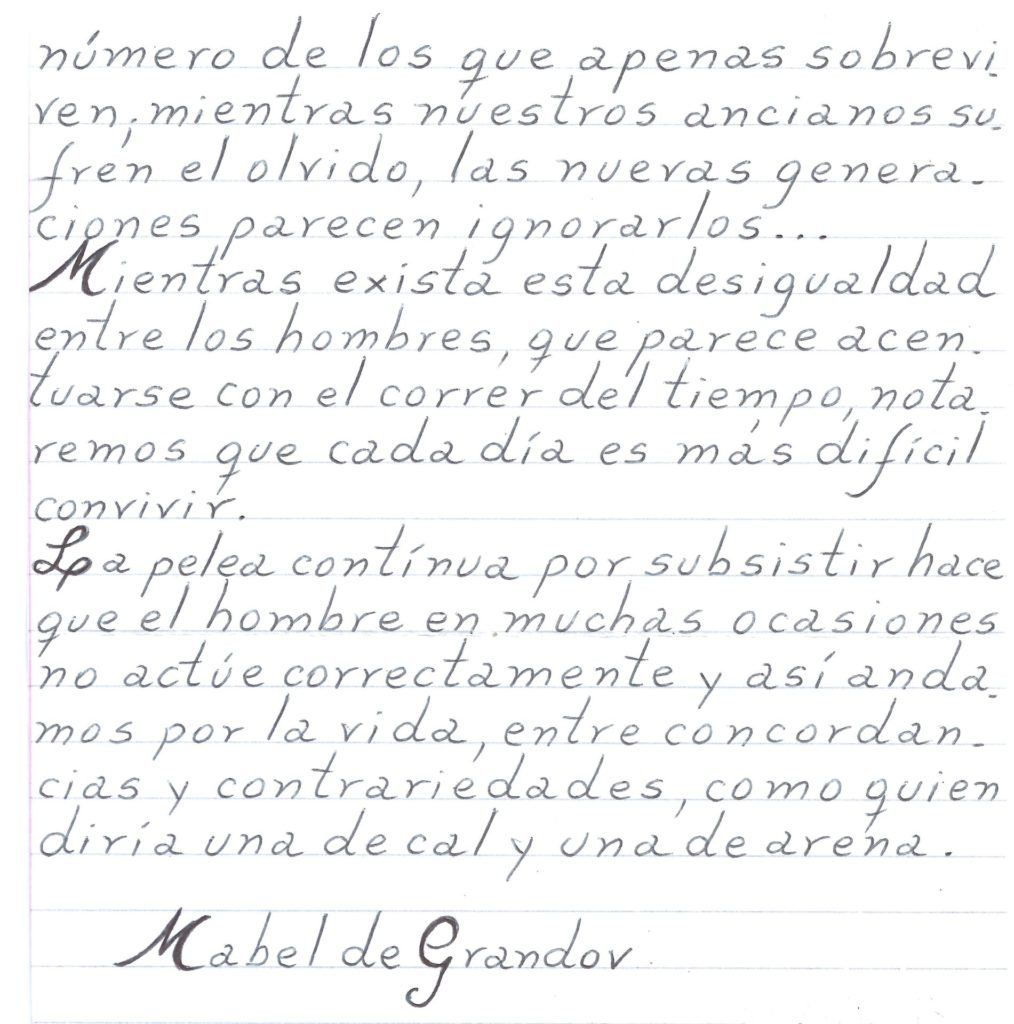 número de los que apenas sobrevi-
ven; mientras nuestros ancianos su-
fren el olvido, las nuevas genera-
ciones parecen ignorarlos...
Mientras exista esta desigualdad
entre los hombres, que parece acen-
tuarse con el correr del tiempo, nota-
remos que cada día es más difícil
convivir.
La pelea contínua por subsistir hace
que el hombre en muchas ocasiones
no actúe correctamente y así anda-
mos por la vida, entre concordan-
cias y contrariedades, como quien
diría una de cal y una de arena.
Mabel de Grandov